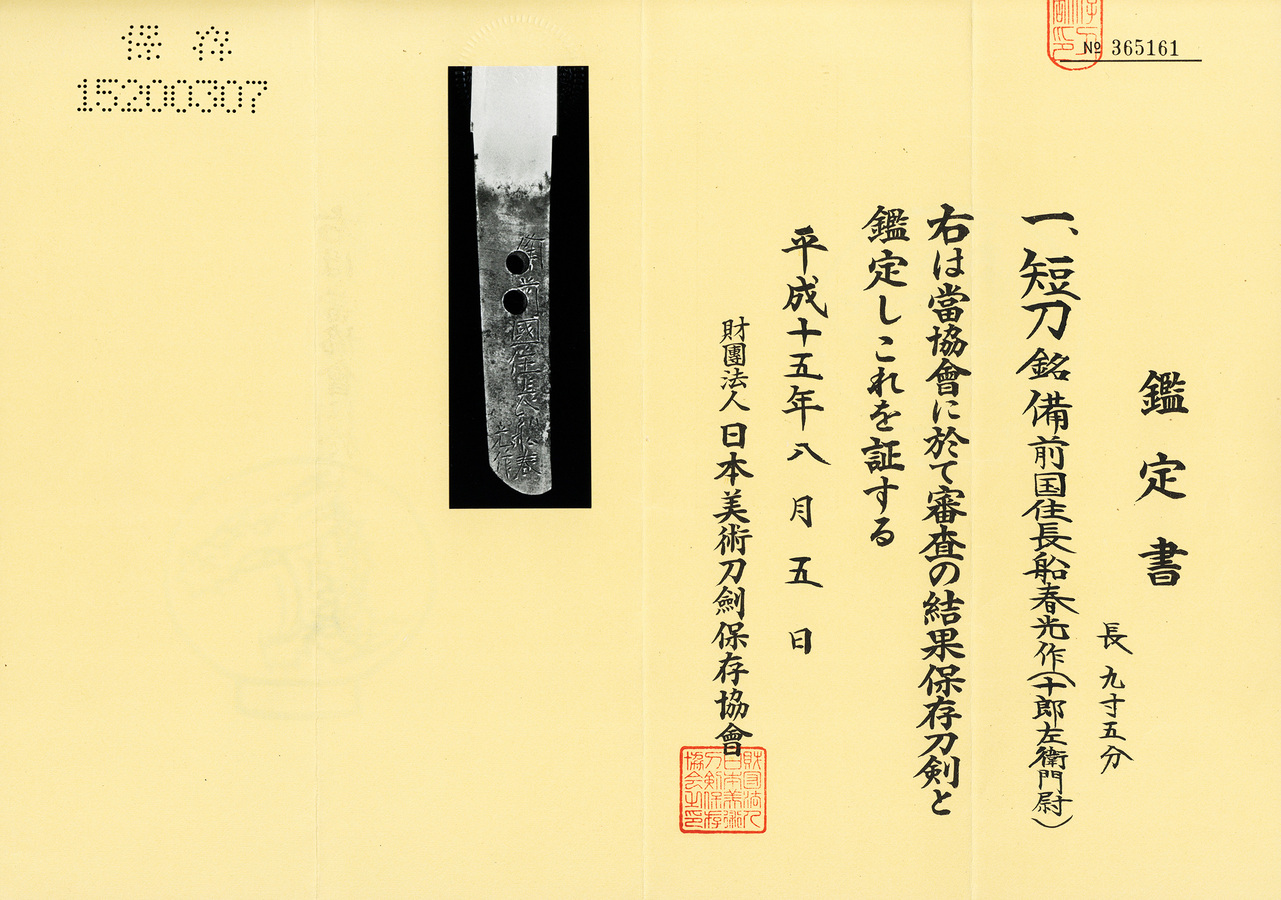 保存
15200307
№ 365161
鑑定書
長 九寸五分
一、短刀 銘 備前国住長船春光作(十郎左衛門尉)
右は當協會に於て審査の結果保存刀剣と
鑑定しこれを証する
平成十五年八月五日
財團法人 日本美術刀劍保存協會
財団法人
日本美術
刀剣保存
協会之印
國住長船春
光作